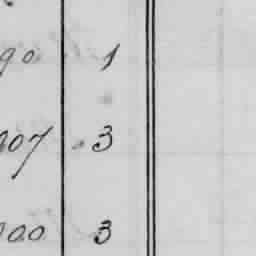 90 1
907 3
00 3